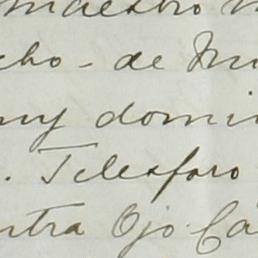 maestro
cho - de Mi
my domin
. Telesforo
ntra Ojo Ca